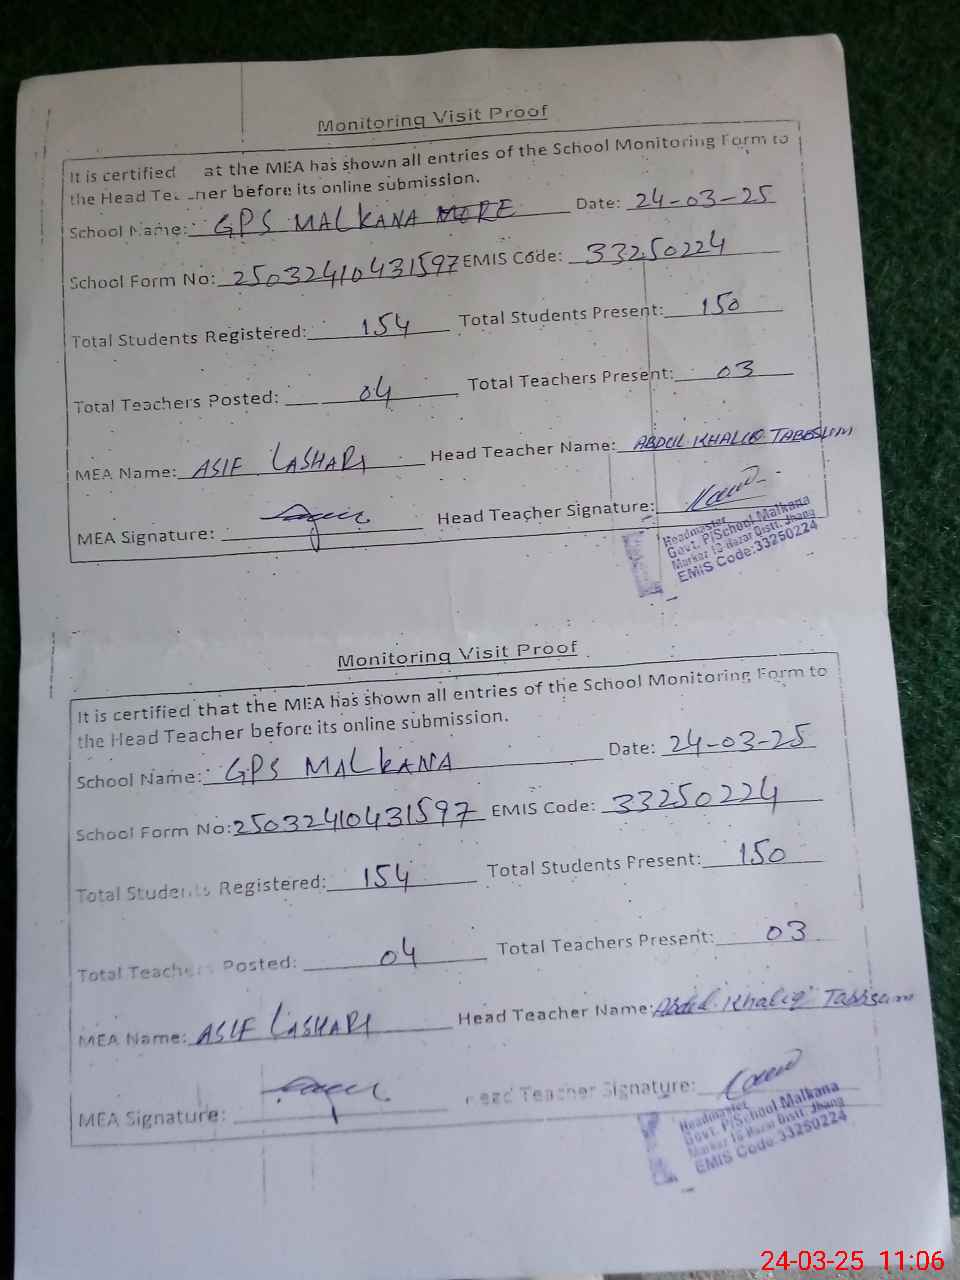 Monitoring Visit Proof
It is certified at the MEA has shown all entries of the School Monitoring Form to
the Head Te ner before its online submission.
School Name: GPS MALKANA MORE Date: 24-03-25
School Form No: 25032410431597 EMIS Code: 33250224
Total Students Registered: 154 Total Students Present: 150
Total Teachers Posted: 04 Total Teachers Present: 03
MEA Name: ASIF LASHARI Head Teacher Name: ABDUL KHALIQ TABASSUM
MEA Signature: Head Teacher Signature:
Headmaster
Govt. P/School Malkana
Markaz 18-Hazari Distt. Jhang
EMIS Code:33250224
Monitoring Visit Proof
It is certified that the MEA has shown all entries of the School Monitoring Form to
the Head Teacher before its online submission.
School Name: GPS MALKANA Date: 24-03-25
School Form No: 25032410431597 EMIS Code: 33250224
Total Students Registered: 154 Total Students Present: 150
Total Teachers Posted: 04 Total Teachers Present: 03
MEA Name: ASIF LASHARI Head Teacher Name: Abdul Khaliq Tabassum
MEA Signature: Head Teacher Signature:
Headmaster
Govt. P/School Malkana
Markaz 18-Hazari Distt. Jhang
EMIS Code:33250224
24-03-25 11:06